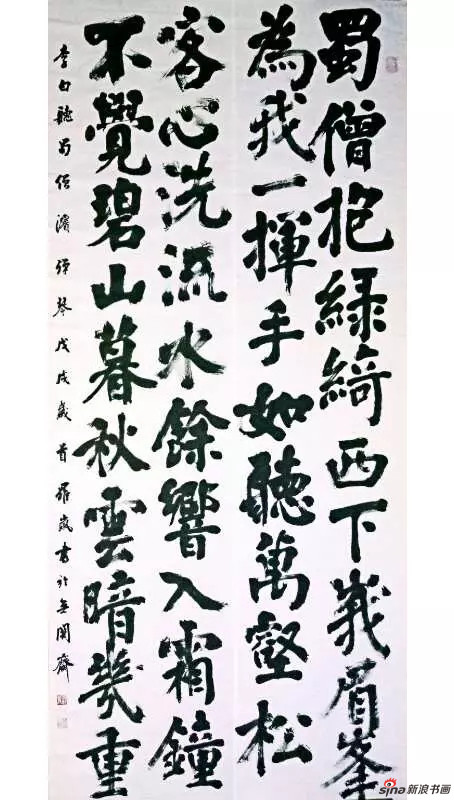 蜀僧抱緑綺西下峩眉峯
為我一揮手如聽萬壑松
客心洗流水餘響入霜鐘
不覺碧山暮秋雲暗幾重
李白聽蜀僧濬彈琴戊戌歲首羅書於無齋
sina新浪书画